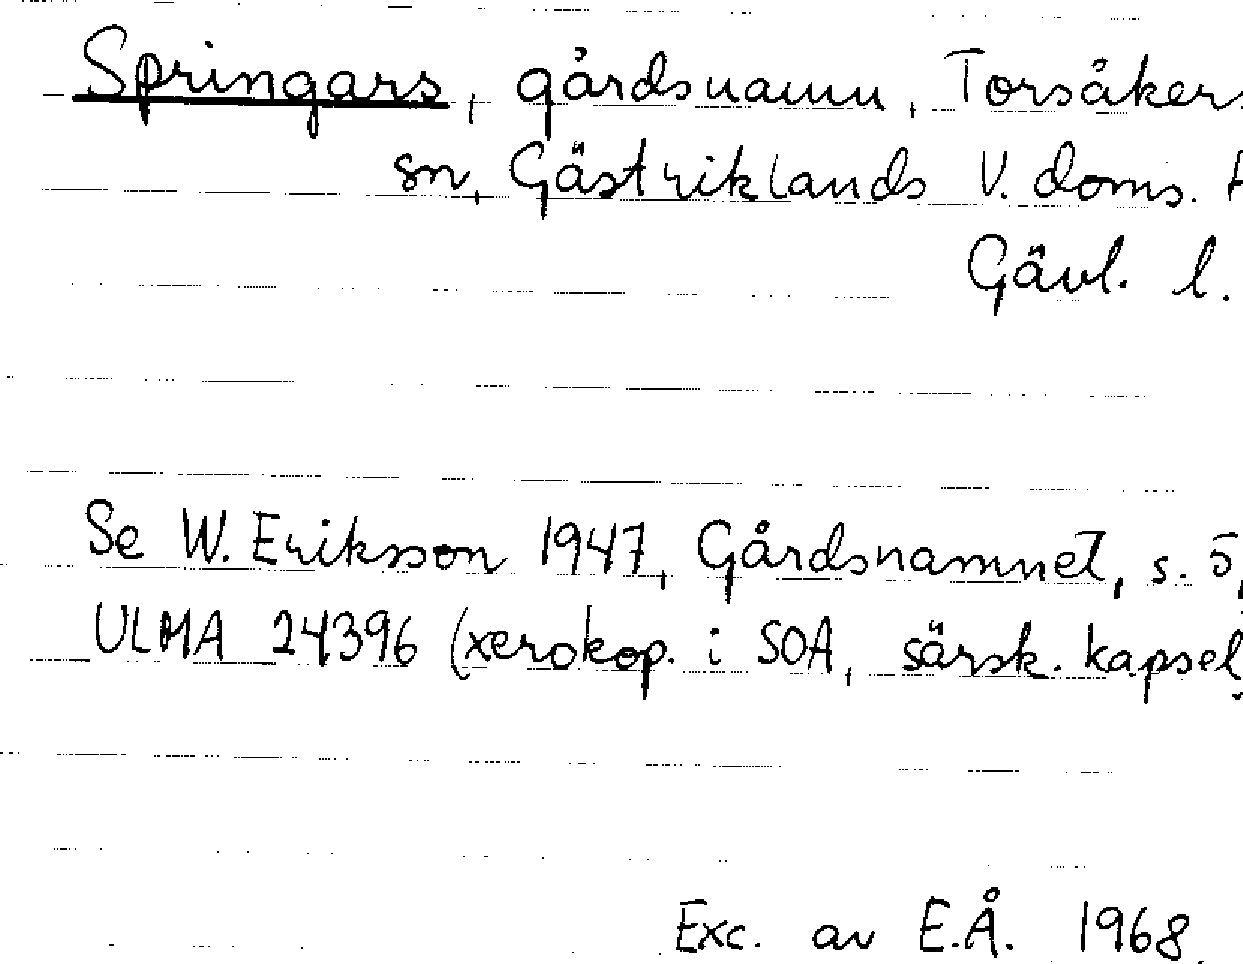 Springars, gårdsnamn, Torsåkers
sn, Gästriklands V. doms.
Gävl. l.
Se W. Eriksson 1947, Gårdsnamnet, s. 5,
ULMA 24396 (xerokop. i SOA, särsk. kapsel)
Exc. av E.Å. 1968.